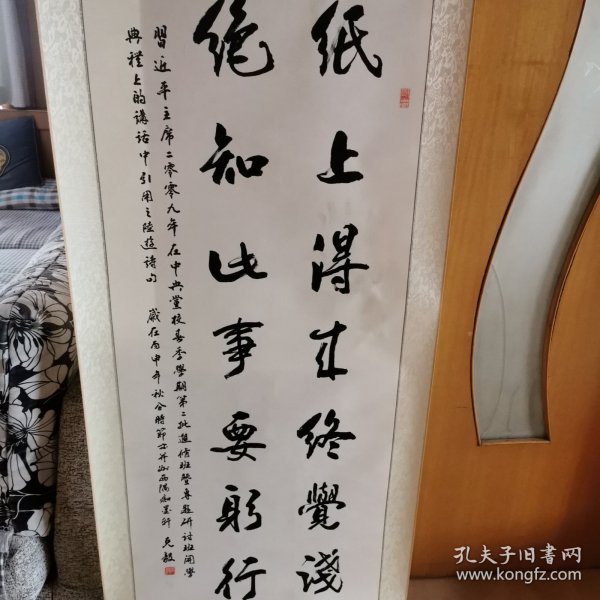 纸上得来终觉浅
绝知此事要躬行
習近平主席二零零九年在中央党校春季學期第二批進修班暨专题研讨班開學
典禮上的講话中引用之陸游诗句 歲在丙申年秋分時節
克毅
孔夫子旧书网
www.kongfz.com